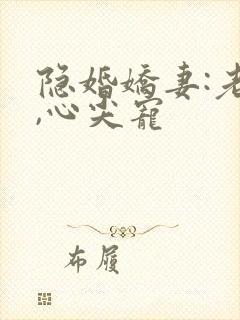 隐婚娇妻:老
,心尖宠
布履